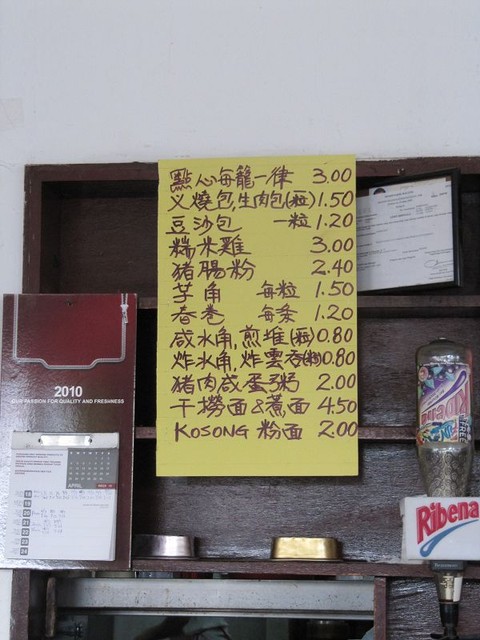 點心每籠一律 3.00
义燒包,生肉包(粒)1.50
豆沙包 一粒 1.20
糯米雞 3.00
猪腸粉 2.40
芋角 每粒 1.50
春卷 每条 1.20
咸水角,煎堆(粒)0.80
炸水角,炸雲吞(粒)0.80
猪肉咸蛋粥 2.00
干撈面&煮面 4.50
KOSONG 粉面 2.00
2010
OUR PASSION FOR QUALITY AND FRESHNESS
APRIL
Ribena